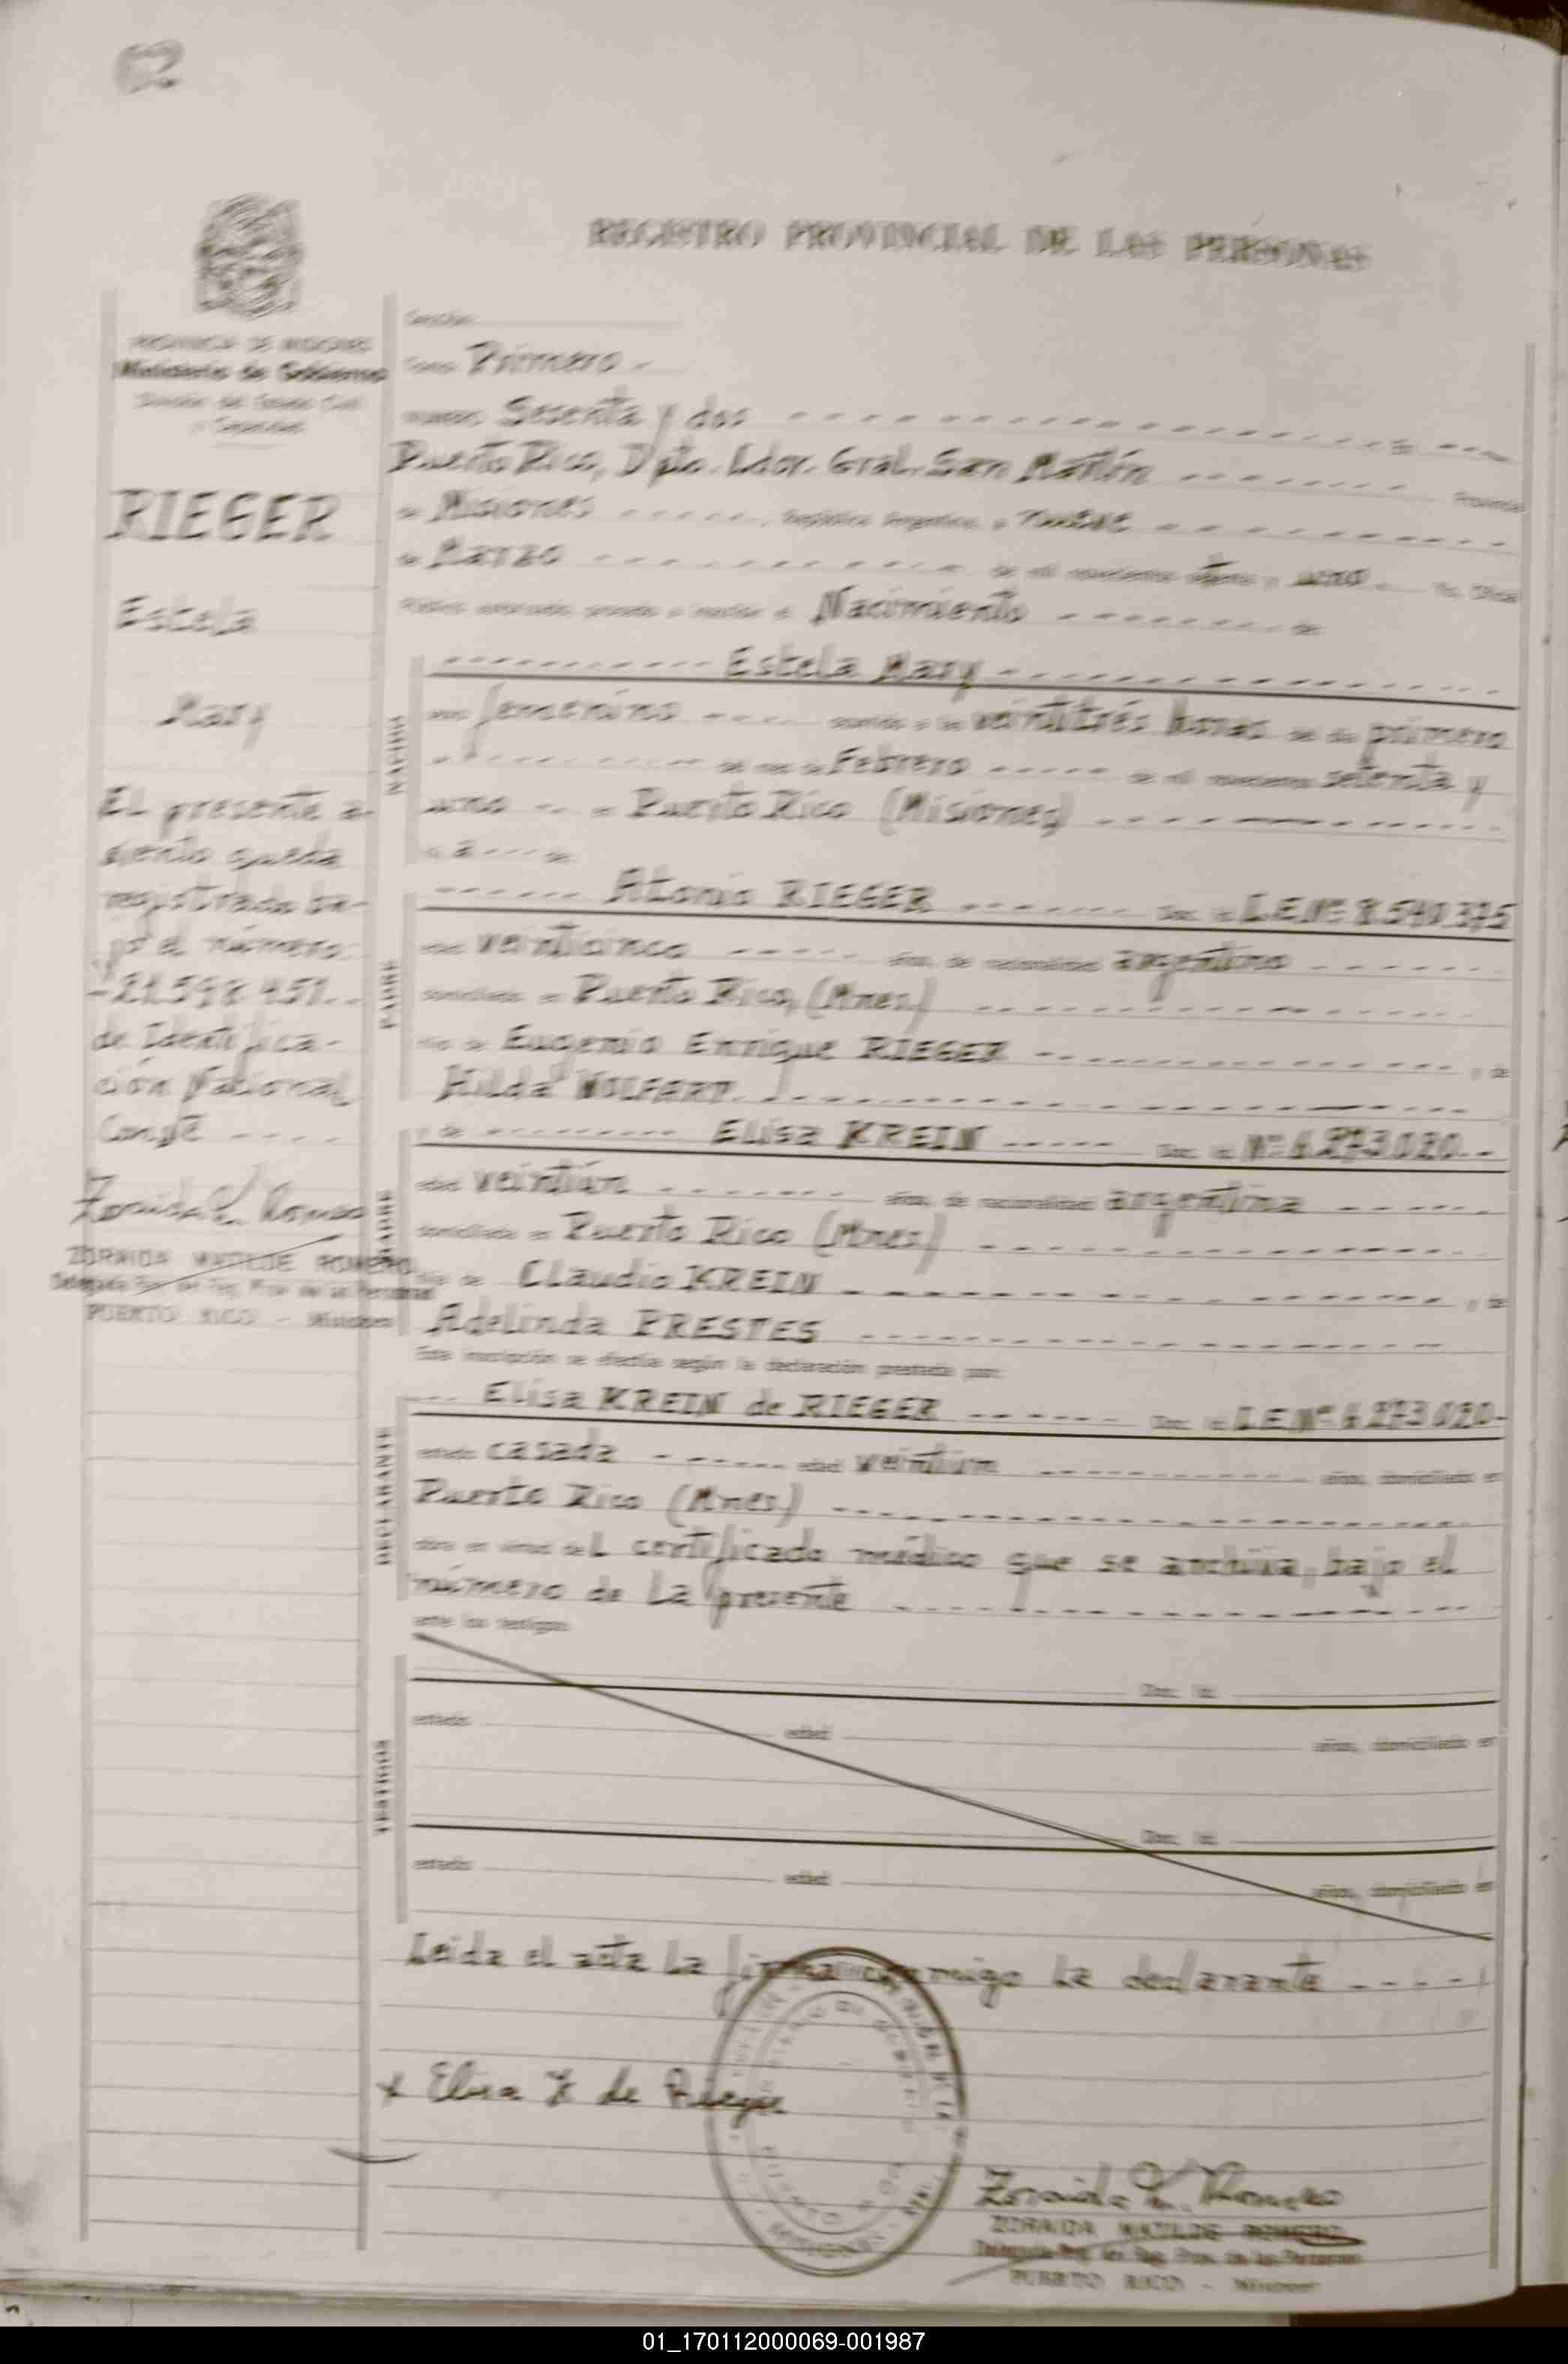 62
REGISTRO PROVINCIAL DE LAS PERSONAS
PROVINCIA DE MISIONES
Ministerio de Gobierno
RIEGER
Estela
Mary
El presente a-
siento queda
registrado ba-
jo el número:
de Identifica-
ción Nacional
Conste
ZORAIDA MATILDE ROMERO
PUERTO RICO - Misiones
Sección
Tomo Primero -
Número Sesenta y dos
Puerto Rico, Dpto. Ldor. Gral. San Martín Provincia
de Misiones República Argentina, a nueve
de Marzo de mil novecientos setenta y uno Yo, Oficial
Público autorizado, procedo a inscribir el Nacimiento de
NACIDO
Estela Mary
sexo femenino ocurrido a las veintitrés horas del día primero
del mes de Febrero de mil novecientos setenta y
uno en Puerto Rico (Misiones)
PADRE
Atonio RIEGER Doc. Id. L.E.Nº 8.540.375
edad veinticinco años, de nacionalidad argentino
domiciliado en Puerto Rico, (Mnes.)
hijo de Eugenio Enrique RIEGER y de
Hilda WOLFART.
MADRE
y de Elisa KREIN Doc. Id. Nº 6.273.020.-
edad veintiún años, de nacionalidad argentina
domiciliada en Puerto Rico (Mnes.)
hija de Claudio KREIN y de
Adelinda PRESTES
Esta inscripción se efectúa según la declaración prestada por:
DECLARANTE
Elisa KREIN de RIEGER Doc. Id. L.E.Nº 6.273.020-
estado casada edad veintiún años, domiciliado en
Puerto Rico (Mnes.)
obra en virtud del certificado médico que se archiva, bajo el
número de la presente
ante los testigos
TESTIGOS
Doc. Id.
estado edad años, domiciliado en
Doc. Id.
estado edad años, domiciliado en
Leida el acta la firma conmigo la declarante
x Elisa K de Rieger
ZORAIDA MATILDE ROMERO
PUERTO RICO - Misiones
01_170112000069-001987